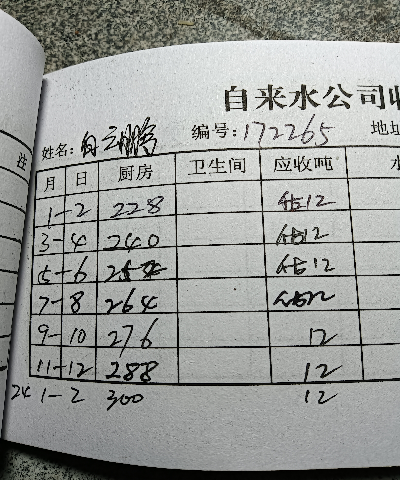 自来水公司收
姓名: 编号: 172265 地址
注
月 日 厨房 卫生间 应收吨 水
1-2 228 估12
3-4 240 估12
5-6 估12
7-8 264
9-10 276 12
11-12 288 12
24 1-2 300 12